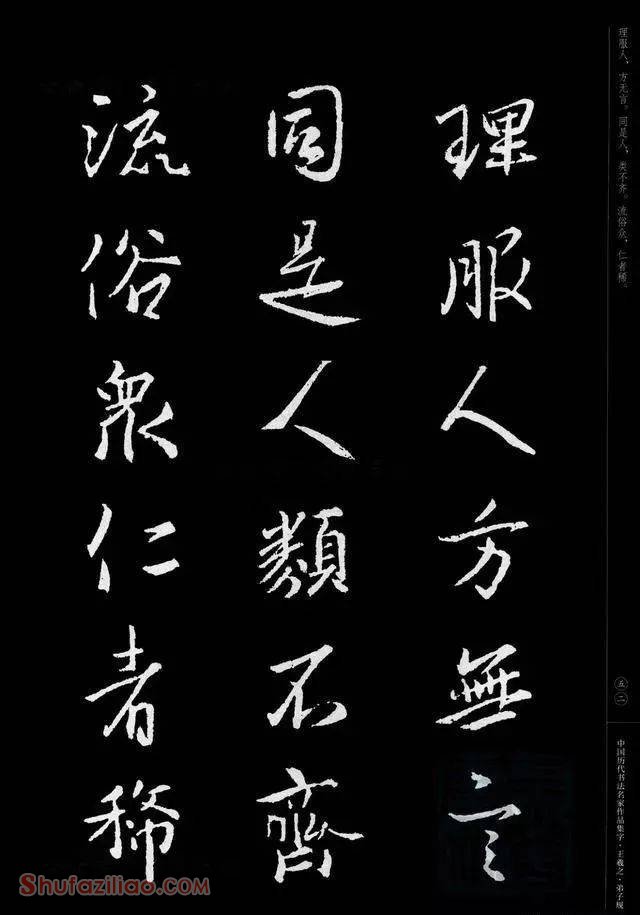 理服人方無言
同是人類不齊
流俗眾仁者稀
理服人，方无言。同是人，类不齐。流俗众，仁者稀。
五二
中国历代书法名家作品集字·王羲之·弟子规
Shufaziliao.com